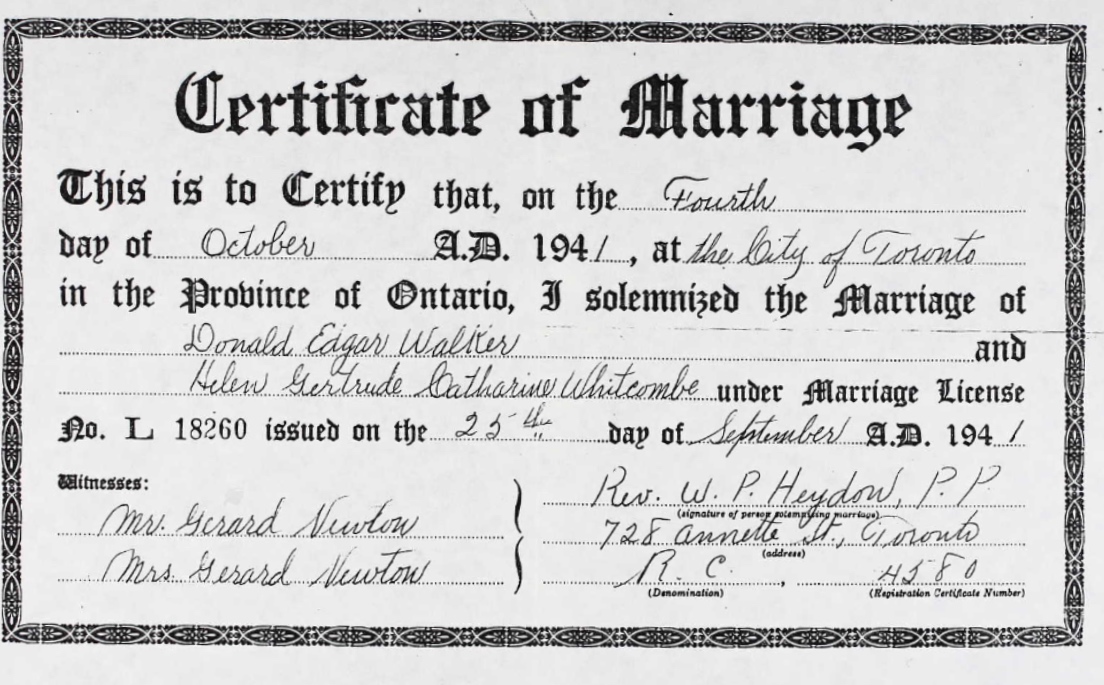 Certificate of Marriage
This is to Certify that, on the Fourth
day of October A.D. 1941, at the City of Toronto
in the Province of Ontario, I solemnized the Marriage of
Donald Edgar Walker and
Helen Gertrude Catharine Whitcombe under Marriage License
No. L 18260 issued on the 25th day of September A.D. 1941
Witnesses:
Mr. Gerard Newton
Mrs. Gerard Newton
Rev. W. P. Heydon, P. P.
(signature of person solemnizing marriage)
728 Annette St., Toronto
(address)
R. C. , 4580
(Denomination) (Registration Certificate Number)